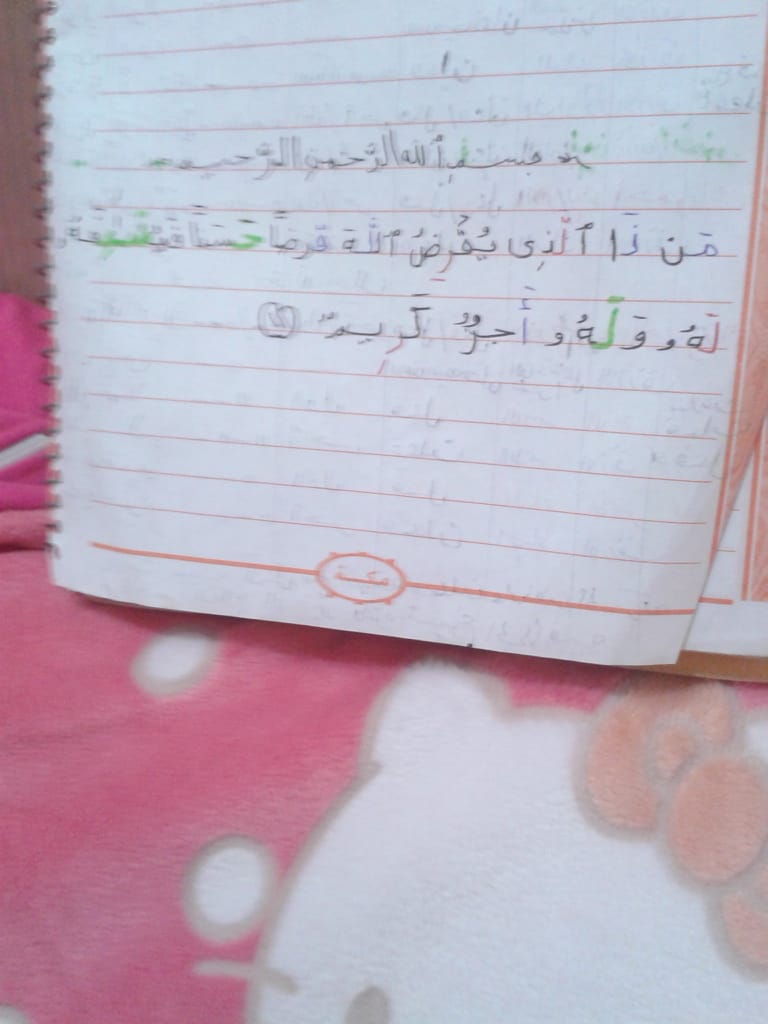 ن
ن ا
بسم ٱلله الرَّحمن الرَّحيم
مَن ذَا ٱلَّذِى يُقْرِضُ ٱللَّهَ قَرضًا حَسَنًا فَيُضَٰعِفَهُ
لَهُ و وَلَهُ و أَجرٌ كَرِيمٌ
مكة